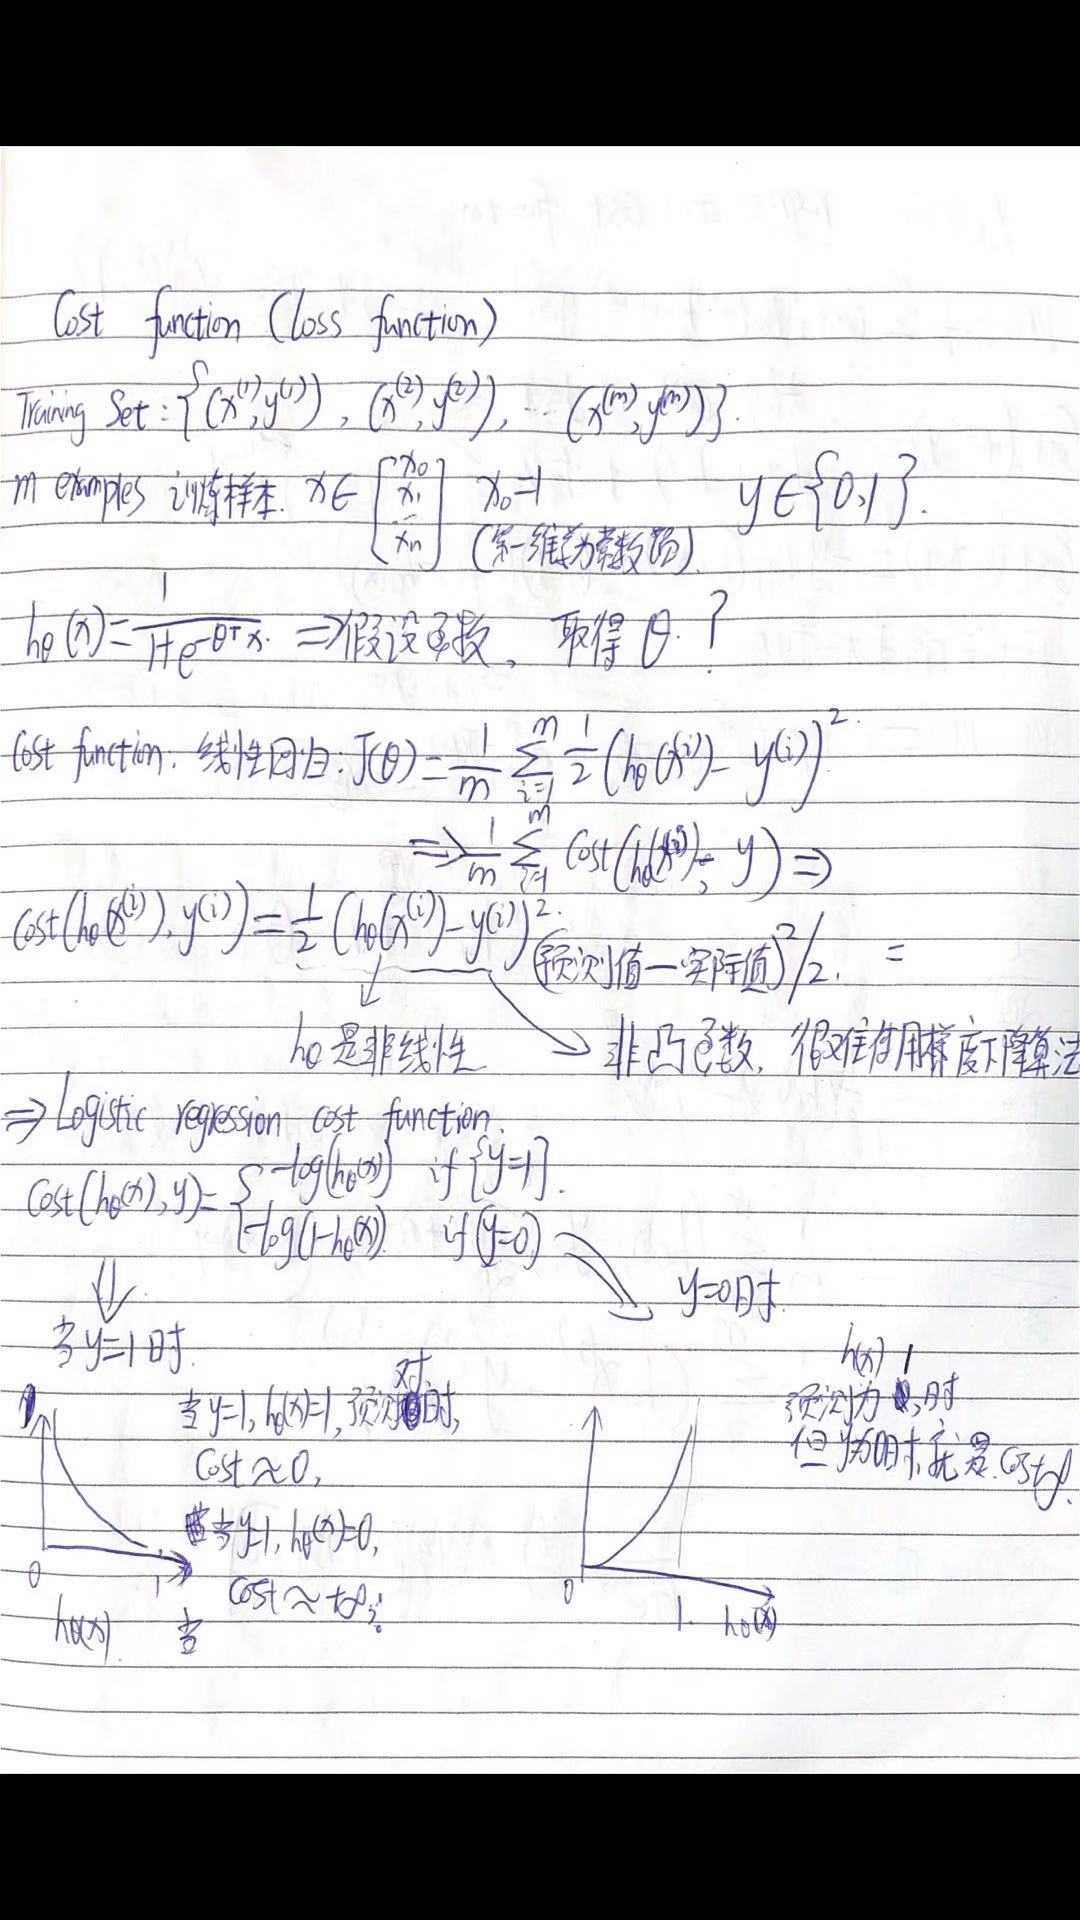 Cost function (Loss function)
Training Set: {(x^(1), y^(1)), (x^(2), y^(2)), ... (x^(m), y^(m))}.
m examples 训练样本. x∈ [x0 x1 ... xn] x0=1 y∈{0,1}.
(第一维为常数项).
hθ(x)=1/(1+e^-θTx. ⇒假设函数, 取得θ.?
Cost function: 线性回归: J(θ)=1/m Σ_{i=1}^m 1/2 (hθ(x^(i))-y^(i))^2.
⇒ 1/m Σ_{i=1}^m Cost(hθ(x^(i)), y) ⇒
Cost(hθ(x^(i)), y^(i))=1/2 (hθ(x^(i))-y^(i))^2. (预测值-实际值)^2/2. =
hθ是非线性
非凸函数, 很难使用梯度下降算法
⇒Logistic regression cost function.
Cost(hθ(x), y)= { -log(hθ(x)) if {y=1}.
-log(1-hθ(x)) if (y=0)
y=0时
当y=1时.
对
当y=1, hθ(x)=1, 预测时,
Cost≈0,
当y=1, hθ(x)=0,
Cost≈+∞;
当
0
1
hθ(x)
h(x) 1
预测为 时
但y为0时, 就是.Cost
0
1.
hθ(x)